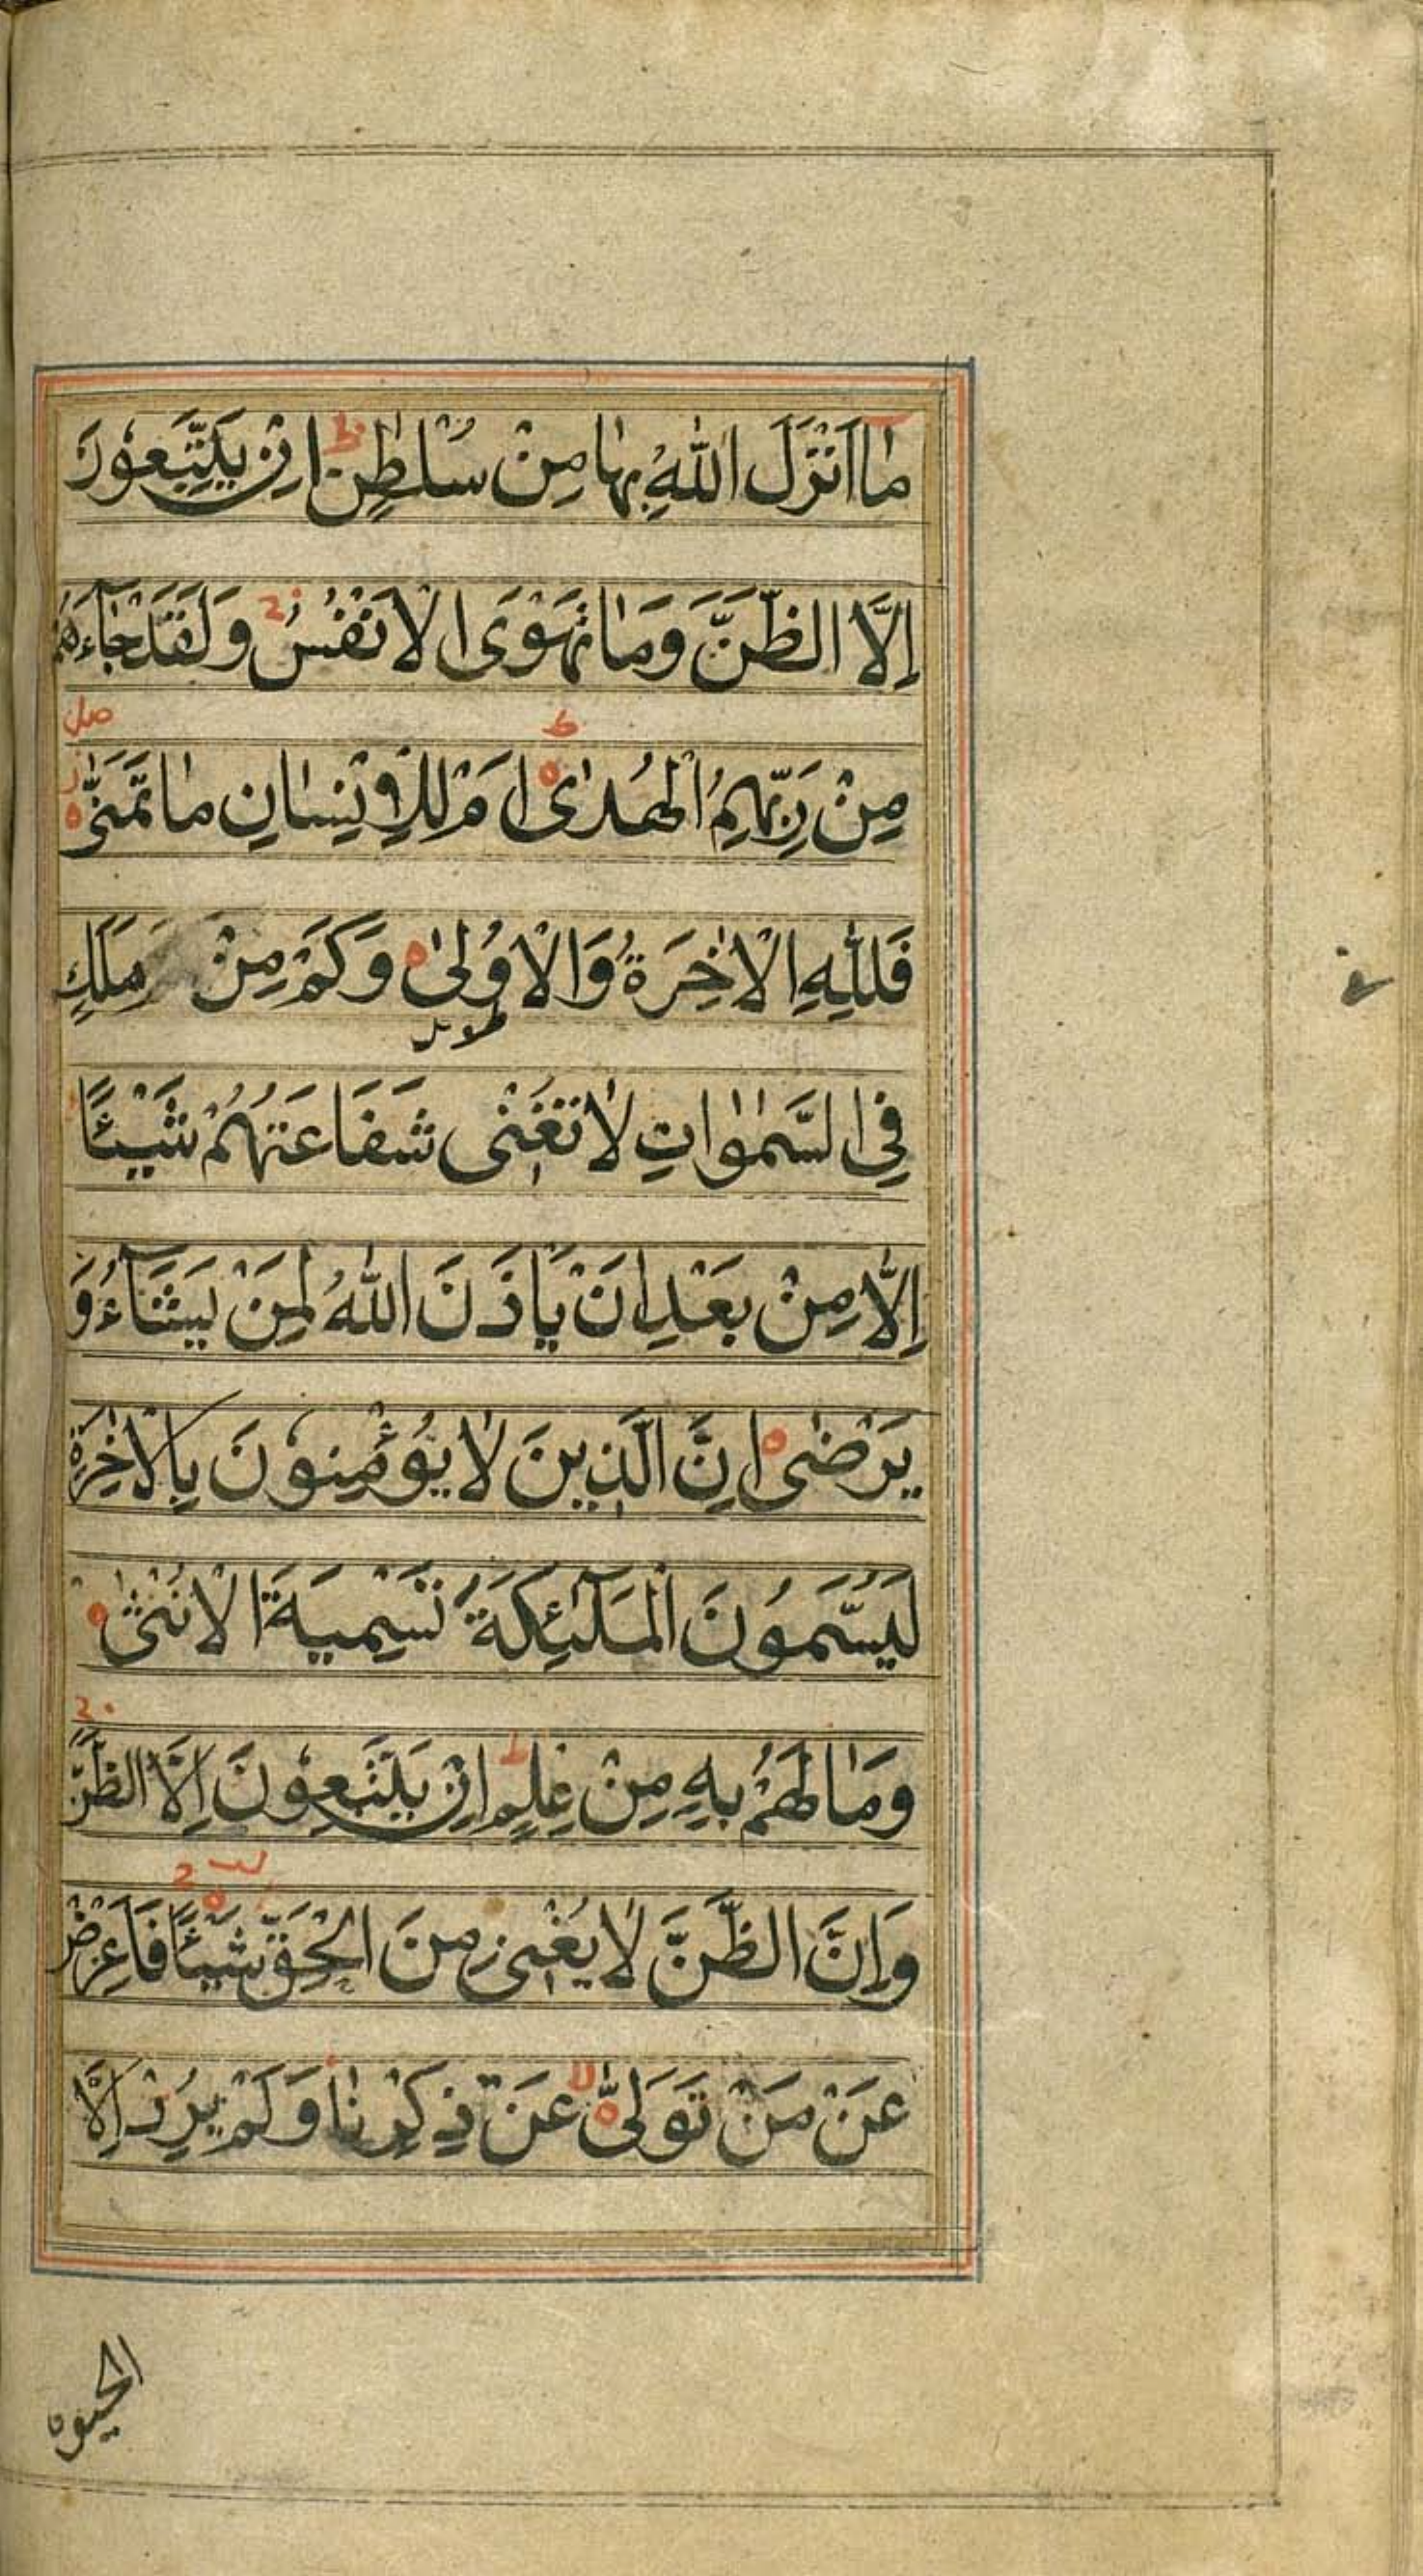 مَا اَنْزَلَ اللّٰهُ بِهَا مِنْ سُلْطٰنٍ ط اِنْ يَتَّبِعُوْنَ
اِلَّا الظَّنَّ وَمَا تَهْوَى الْاَنْفُسُ ج وَلَقَدْ جَاۤءَهُمْ
مِنْ رَبِّهِمُ الْهُدٰى ط اَمْ لِلْاِنْسَانِ مَا تَمَنّٰى صلى
فَلِلّٰهِ الْاٰخِرَةُ وَالْاُوْلٰى وَكَمْ مِنْ مَلَكٍ
فِى السَّمٰوٰاتِ لَا تُغْنٖى شَفَاعَتُهُمْ شَيْئًا
اِلَّا مِنْ بَعْدِ اَنْ يَاْذَنَ اللّٰهُ لِمَنْ يَشَاۤءُ وَ
يَرْضٰى اِنَّ الَّذٖينَ لَا يُؤْمِنُوْنَ بِالْاٰخِرَةِ
لَيُسَمُّوْنَ الْمَلٰۤئِكَةَ تَسْمِيَةَ الْاُنْثٰى
وَمَا لَهُمْ بِهٖ مِنْ عِلْمٍ ط اِنْ يَتَّبِعُوْنَ اِلَّا الظَّنَّ ج
وَاِنَّ الظَّنَّ لَا يُغْنٖى مِنَ الْحَقِّ شَيْئًا فَاَعْرِضْ
عَنْ مَنْ تَوَلّٰى لا عَنْ ذِكْرِنَا وَلَمْ يُرِدْ اِلَّا
الحيوة